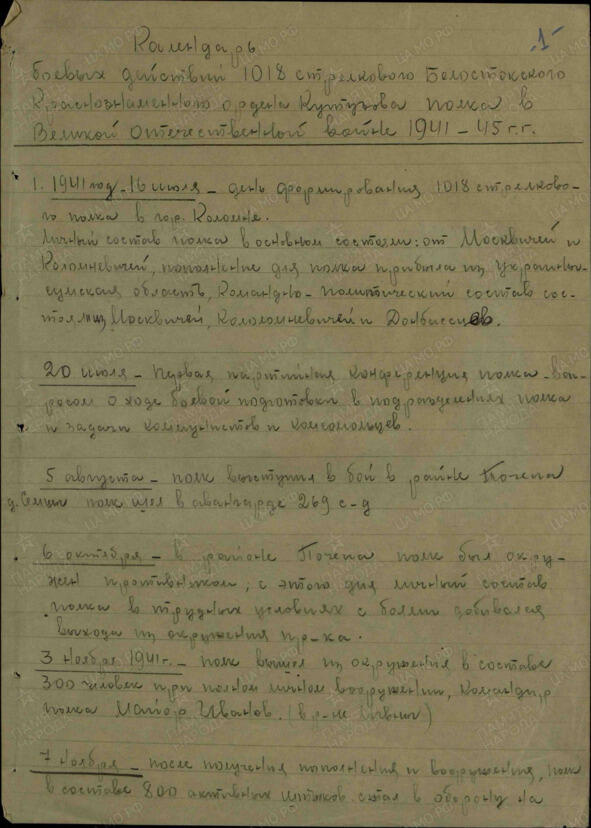 -1-
Календарь
боевых действий 1018 стрелкового Белостокского
Краснознаменного ордена Кутузова полка в
Великой отечественной войне 1941-45 г.г.
1. 1941 год - 16 июля - день формирования 1018 стрелково-
го полка в гор. Коломне.
Личный состав полка в основном состоял: от Москвичей и
Коломневичей, пополнение для полка прибыла из Украины-
сумская область, Командно-политический состав сос-
тоял из Москвичей, Коломневичей и Донбассцев.
20 июля - первая партийная конференция полка - воп-
росом о ходе боевой подготовки в подразделениях полка
и задачи коммунистов и комсомольцев.
5 августа - полк выступил в бой в районе Почепа
д. Семцы полк шел в авангарде 269 с-д
6 октября - в районе Почепа полк был окру-
жен противником, с этого дня личный состав
полка в трудных условиях с боями добивался
выхода из окружения пр-ка.
3 ноября 1941 г. - полк вышел из окружения в составе
300 человек при полном личном вооружении, командир
полка Майор Иванов. (в р-не Ливны)
7 ноября - после получения пополнения и вооружения, полк
в составе 800 активных штыков стал в оборону на